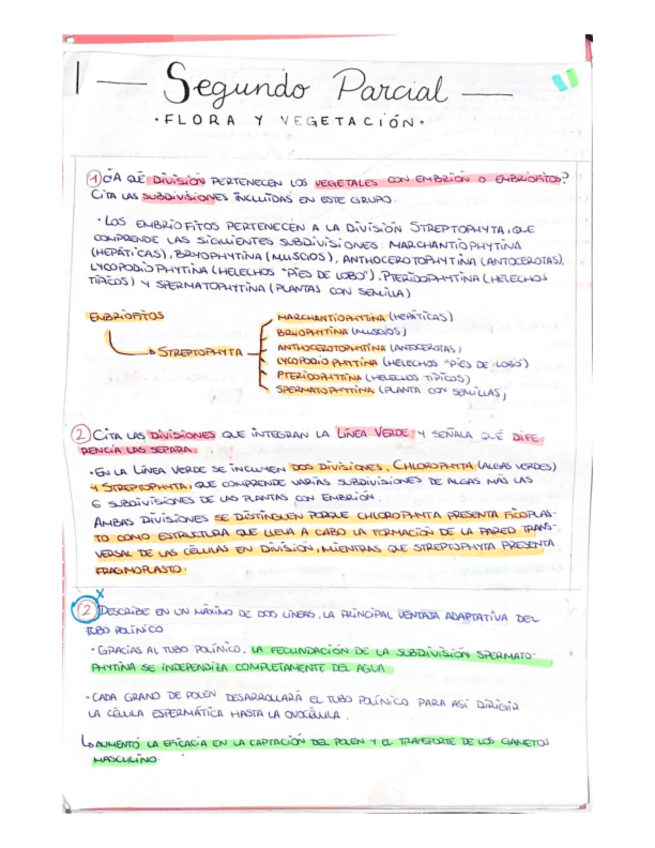 1 — Segundo Parcial —
· FLORA Y VEGETACIÓN ·
1 ¿A QUÉ DIVISIÓN PERTENECEN LOS VEGETALES CON EMBRIÓN O EMBRIOFITOS?
CITA LAS SUBDIVISIONES INCLUIDAS EN ESTE GRUPO.
· LOS EMBRIOFITOS PERTENECEN A LA DIVISIÓN STREPTOPHYTA, QUE
COMPRENDE LAS SIGUIENTES SUBDIVISIONES: MARCHANTIOPHYTINA
(HEPÁTICAS), BRYOPHYTINA (MUSGOS), ANTHOCEROTOPHYTINA (ANTOCEROTAS),
LYCOPODIOPHYTINA (HELECHOS "PIES DE LOBO"), PTERIDOPHYTINA (HELECHOS
TÍPICOS) Y SPERMATOPHYTINA (PLANTAS CON SEMILLA)
EMBRIOFITOS
STREPTOPHYTA
MARCHANTIOPHYTINA (HEPÁTICAS)
BRYOPHYTINA (MUSGOS)
ANTHOCEROTOPHYTINA (ANTOCEROTAS)
LYCOPODIOPHYTINA (HELECHOS "PIES DE LOBO")
PTERIDOPHYTINA (HELECHOS TÍPICOS)
SPERMATOPHYTINA (PLANTA CON SEMILLAS)
2 CITA LAS DIVISIONES QUE INTEGRAN LA LÍNEA VERDE Y SEÑALA QUÉ DIFE
RENCIA LAS SEPARA.
· EN LA LÍNEA VERDE SE INCLUYEN DOS DIVISIONES, CHLOROPHYTA (ALGAS VERDES)
Y STREPTOPHYTA, QUE COMPRENDE VARIAS SUBDIVISIONES DE ALGAS MÁS LAS
6 SUBDIVISIONES DE LAS PLANTAS CON EMBRIÓN.
AMBAS DIVISIONES SE DISTINGUEN PORQUE CHLOROPHYTA PRESENTA FICOPLAS-
TO COMO ESTRUCTURA QUE LLEVA A CABO LA FORMACIÓN DE LA PARED TRANS-
VERSAL DE LAS CÉLULAS EN DIVISIÓN, MIENTRAS QUE STREPTOPHYTA PRESENTA
FRAGMOPLASTO.
x
2 DESCRIBE EN UN MÁXIMO DE DOS LÍNEAS, LA PRINCIPAL VENTAJA ADAPTATIVA DEL
TUBO POLÍNICO
· GRACIAS AL TUBO POLÍNICO, LA FECUNDACIÓN DE LA SUBDIVISIÓN SPERMATO-
PHYTINA SE INDEPENDIZA COMPLETAMENTE DEL AGUA
· CADA GRANO DE POLEN DESARROLLARÁ EL TUBO POLÍNICO PARA ASÍ DIRIGIR
LA CÉLULA ESPERMÁTICA HASTA LA OVOCÉLULA.
↳ AUMENTÓ LA EFICACIA EN LA CAPTACIÓN DEL POLEN Y EL TRANSPORTE DE LOS GAMETOS
MASCULINO.